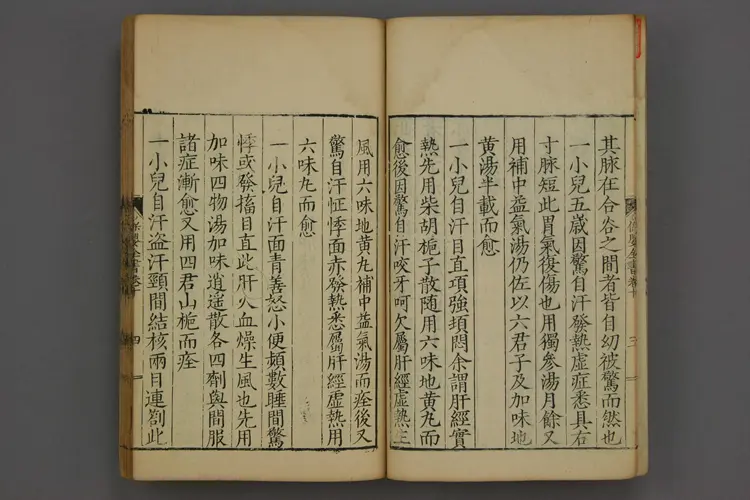 其脉在合谷之間者皆自幼被驚而然也
一小兒五歲因驚自汗發熱虛症悉具右
寸脉短此胃氣復傷也用獨參湯月餘又
用補中益氣湯仍佐以六君子及加味地
黄湯半載而愈
一小兒自汗目直項強頊悶余謂肝經實
熱先用柴胡梔子散隨用六味地黄丸而
愈後因驚自汗咬牙呵欠屬肝經虛熱生
風用六味地黄丸補中益氣湯而痊後又
驚自汗怔悸面赤發熱悉屬肝經虛熱用
六味丸而愈
一小兒自汗面青善怒小便頻數睡間驚
悸或發搐目直此肝火血燥生風也先用
加味四物湯加味逍遥散各四劑與間服
諸症漸愈又用四君山梔而痊
一小兒自汗盗汗頸間結核兩目連劄此
保嬰全書卷十
三
保嬰全書卷十
四